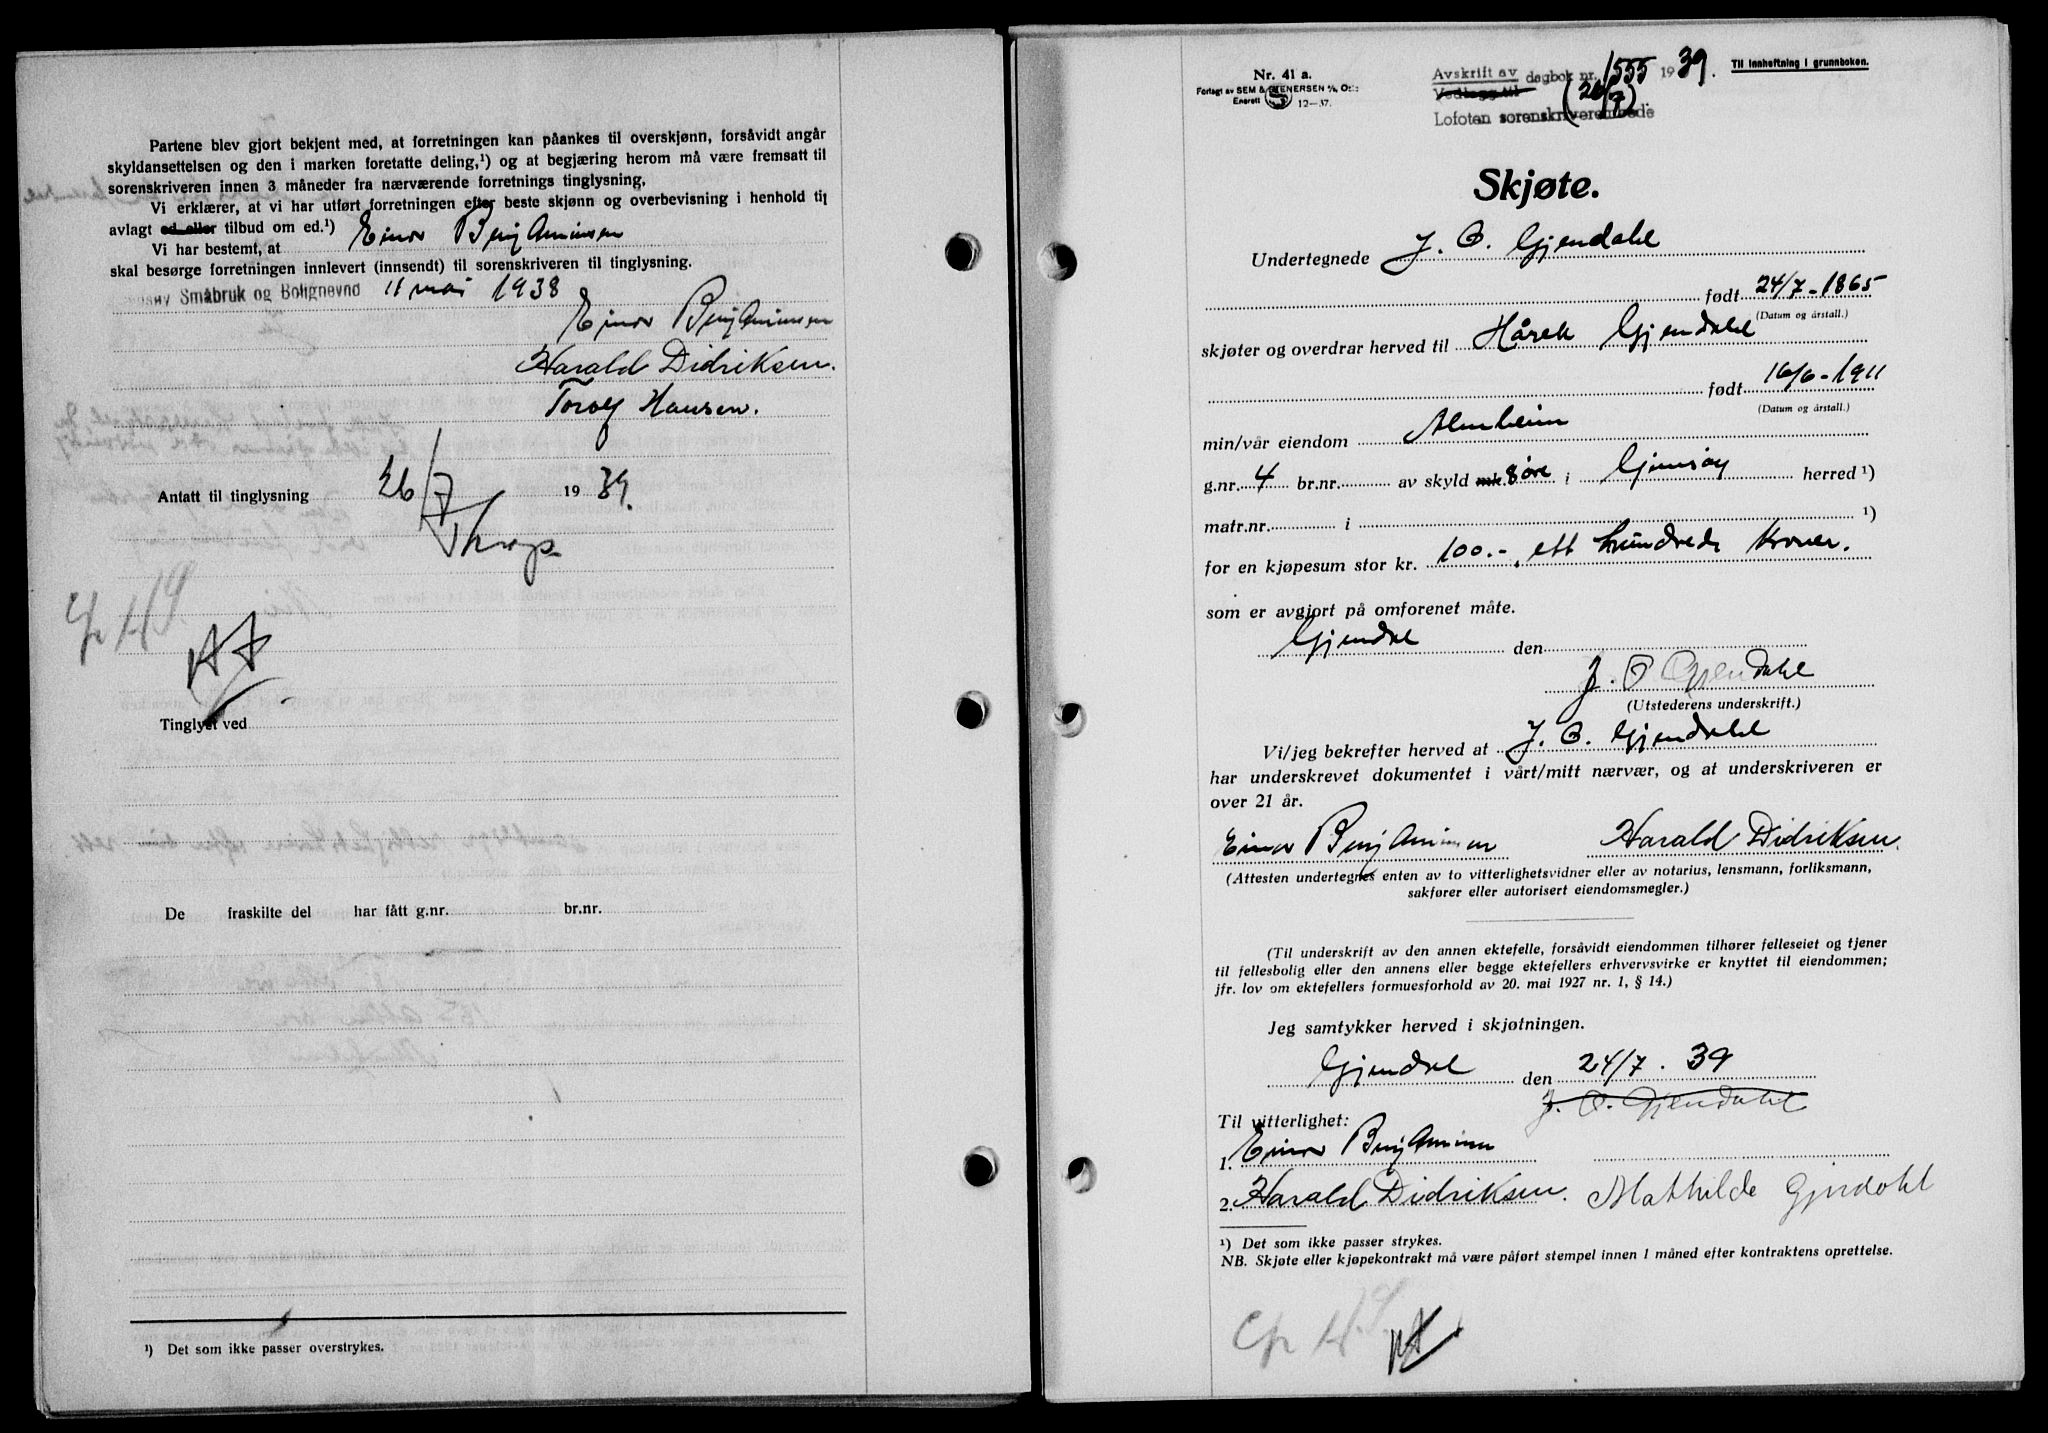 Partene blev gjort bekjent med, at forretningen kan påankes til overskjønn, forsåvidt angår
skyldansettelsen og den i marken foretatte deling,¹) og at begjæring herom må være fremsatt til
sorenskriveren innen 3 måneder fra nærværende forretnings tinglysning,
Vi erklærer, at vi har utført forretningen efter beste skjønn og overbevisning i henhold til
avlagt ed eller tilbud om ed.¹)
Vi har bestemt, at Einar Benjaminsen
skal besørge forretningen innlevert (innsendt) til sorenskriveren til tinglysning.
Småbruk og Bolignevnd 11 mai 1938
Einar Benjaminsen
Harald Didriksen.
Torolf Hansen.
Antatt til tinglysning 26/7 1939.
Tinglyst ved
De fraskilte del har fått g.nr. br.nr.
¹) Det som ikke passer overstrykes.
Nr. 41 a.
Forlagt av SEM & STENERSEN A/S, Oslo
Enerett 12-37.
Avskrift av
Vedlegg til dagbok nr. 1555 1939.
(26/7)
Lofoten sorenskriverembede
Til innheftning i grunnboken.
Skjøte.
Undertegnede J. O. Gjendahl
født 24/7-1865
(Datum og årstall.)
skjøter og overdrar herved til Hårek Gjendahl
født 16/6-1911
(Datum og årstall.)
min/vår eiendom Almheim
g.nr. 4 br.nr. av skyld mk. 8 øre i Gimsøy herred ¹)
matr.nr. i ¹)
for en kjøpesum stor kr. 100.-, ett hundrede kroner.
som er avgjort på omforenet måte.
Gjendal den
J. O Gjendahl
(Utstederens underskrift.)
Vi/jeg bekrefter herved at J. O. Gjendahl
har underskrevet dokumentet i vårt/mitt nærvær, og at underskriveren er
over 21 år.
Einar Benjaminsen Harald Didriksen.
(Attesten undertegnes enten av to vitterlighetsvidner eller av notarius, lensmann, forliksmann,
sakfører eller autorisert eiendomsmegler.)
(Til underskrift av den annen ektefelle, forsåvidt eiendommen tilhører felleseiet og tjener
til fellesbolig eller den annens eller begge ektefellers erhvervsvirke er knyttet til eiendommen;
jfr. lov om ektefellers formuesforhold av 20. mai 1927 nr. 1, § 14.)
Jeg samtykker herved i skjøtningen.
Gjendal den 24/7. 39
J. O. Gjendahl
Til vitterlighet:
1. Einar Benjaminsen
2. Harald Didriksen. Mathilde Gjendahl
¹) Det som ikke passer strykes.
NB. Skjøte eller kjøpekontrakt må være påført stempel innen 1 måned efter kontraktens oprettelse.